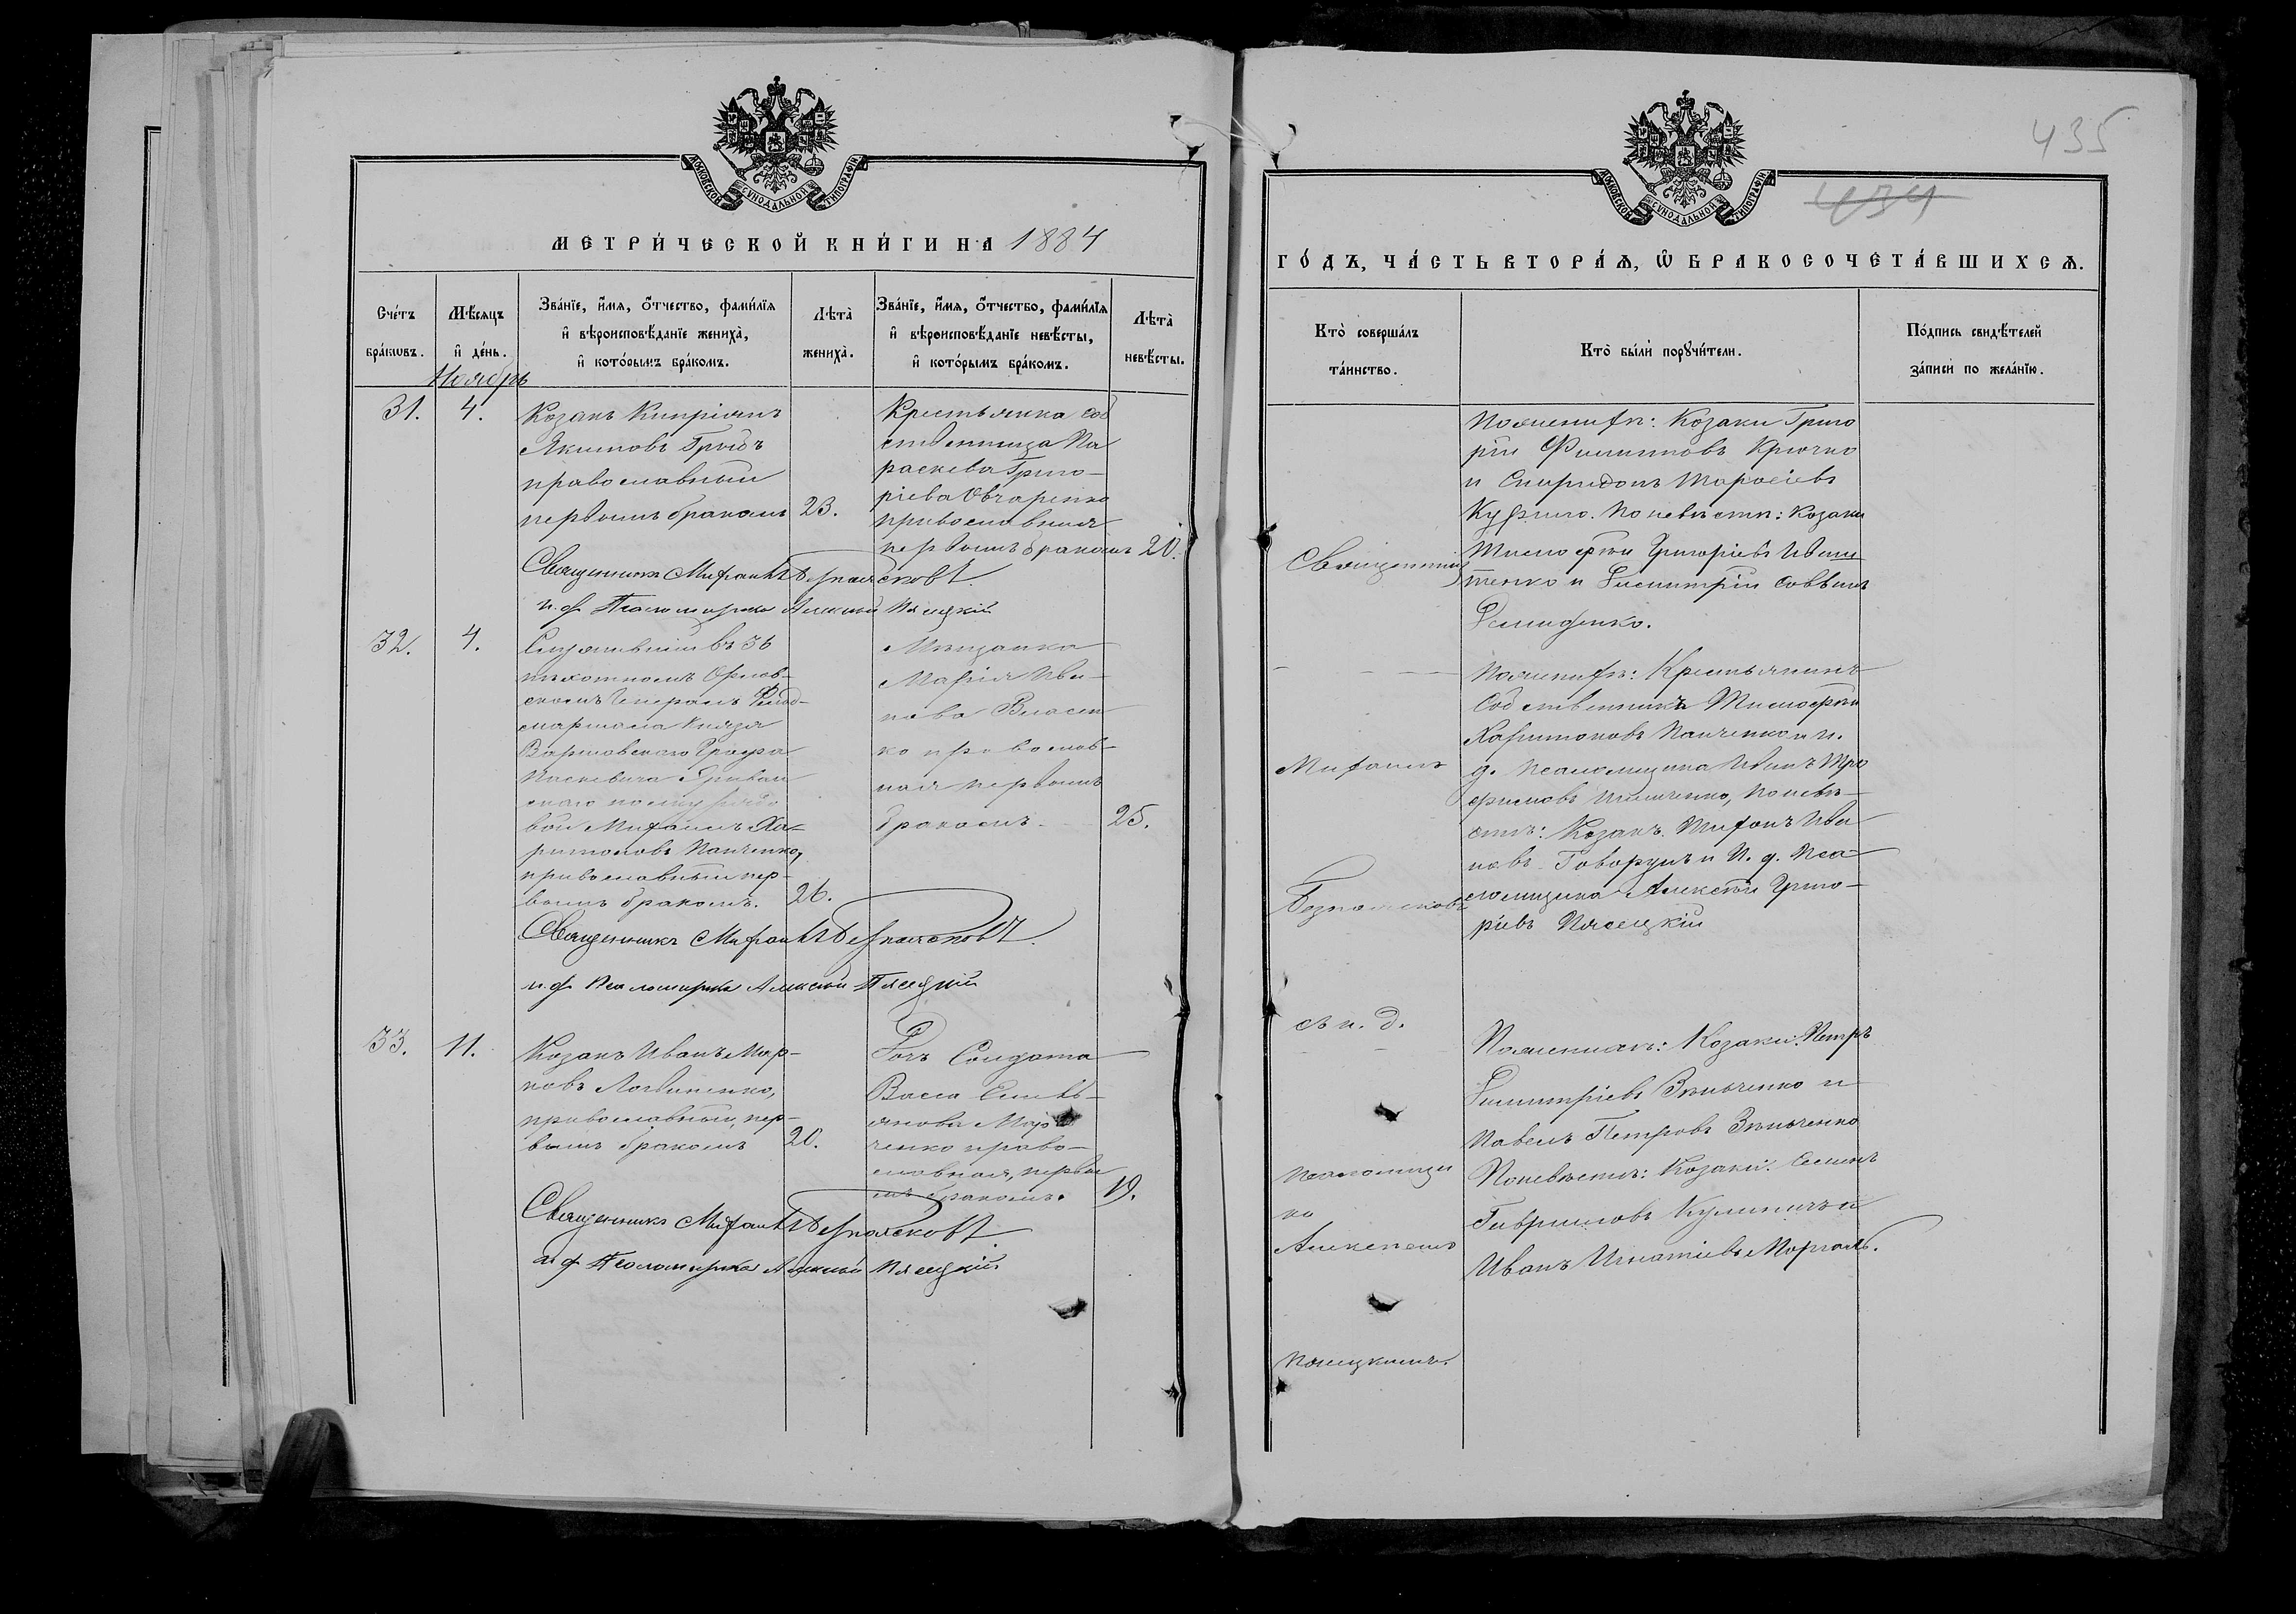 МОСКОВСКОЙ СѴНОДАЛЬНОЙ ТИПОГРАФІИ
МЕТРИ́ЧЕСКОЙ КНИ́ГИ НА 1884
Сче́тъ бра́кѡвъ.
Мѣ́сяцъ и҆ де́нь.
Зва́нїе, и҆́мя, ѻ҆́тчество, фами́лїя
и҆ вѣроисповѣ́данїе жениха̀,
и҆ кото́рымъ бра́комъ.
Лѣта̀ жениха̀.
Зва́нїе, и҆́мя, ѻ҆́тчество, фами́лїя
и҆ вѣроисповѣ́данїе невѣ́сты,
и҆ кото́рымъ бра́комъ.
Лѣта̀ невѣ́сты.
Ноябрь
31.
4.
Козакъ Кипріянъ
Якимовъ
православный
первымъ бракомъ
23.
Крестьянка соб
ственница Па
раскева Григо-
ріева Овчаренко
православная
первымъ бракомъ
20.
Священникъ Митрофанъ Безпоясковъ
и. д. Псаломщика Алексѣй Пясецкій
32.
4.
Служившій въ 36
пѣхотномъ Орлов-
скомъ Генералъ Фельд-
маршала Князя
Варшавскаго Графа
Паскевича Эриван
скаго полку рядо
вой Ха-
ритоновъ Панченко,
православный пер-
вымъ бракомъ.
26.
Мѣщанка
Марія Ива-
нова Власен
ко православ-
ная первымъ
бракомъ
25.
Священникъ Митрофанъ Безпоясковъ.
и. д. Псаломщика Алексѣй Пясецкій
33.
11.
Козакъ Иванъ Мар-
ковъ Логвиненко,
православный, пер-
вымъ бракомъ
20.
Дочь Солдата
Васса Емель-
янова
ченко право-
славная, первы
мъ бракомъ.
19.
Священникъ Митрофанъ Безпоясковъ
и. д. Псаломщика Алексѣй Пясецкій
435
434
МОСКОВСКОЙ СѴНОДАЛЬНОЙ ТИПОГРАФІИ
ГО́ДЪ, ЧА́СТЬ ВТОРА́Ѧ, Ѽ БРАКОСОЧЕТА́ВШИХСѦ.
Кто̀ соверша́лъ
та́инство.
Кто̀ бы́ли порꙋчи́тели.
По́дпись свидѣ́телей
за́писи по жела́нїю.
Священникъ
Безпоясковъ
съ и. д.
Псаломщи
ка
Алексѣемъ
Пясецкимъ.
По женихѣ: Козаки Григо
рій Филиповъ Крючко
и Спиридонъ Тарасіевъ
По невѣстѣ: Козаки
Тимофей Григоріевъ
и Димитрій Саввинъ
Демиденко.
По женихѣ: Крестьянинъ
Собственникъ Тимофей
Харитоновъ Панченко и и.
д. Псаломщика Иванъ Тро
фимовъ По невѣ-
стѣ: Козакъ Ива
новъ Говорунъ и И. д. Пса-
ломщика Алексѣй Григо-
ріевъ Пясецкій
По женихѣ: Козаки: Петръ
Димитріевъ Зѣньченко и
Павелъ Петровъ Зѣньченко
По невѣстѣ: Козаки: Семенъ
Гавриловъ Кулиничъ и
Иванъ Игнатіевъ Моргаль.